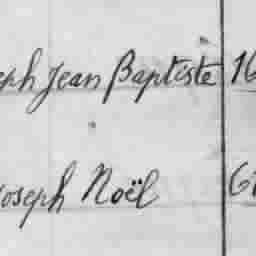 eph Jean Baptiste 16
Joseph Noël 6